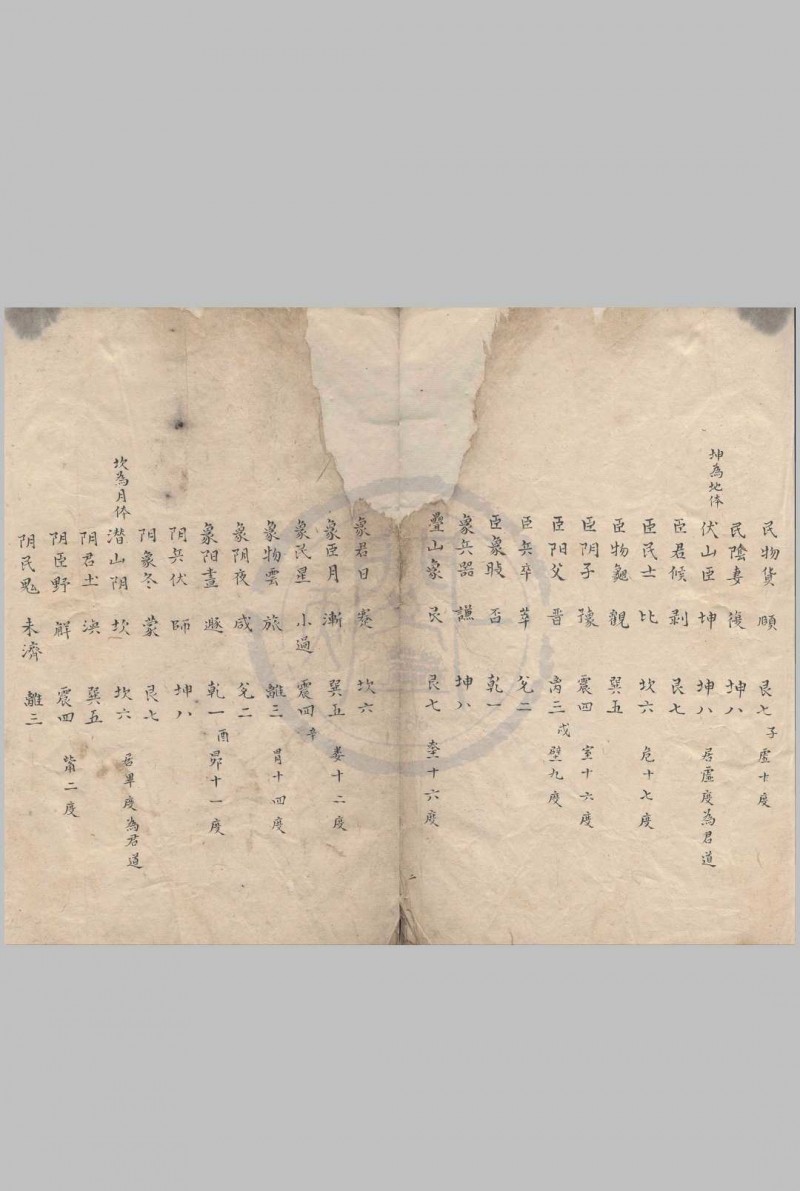 民物貨 頤 艮七 子 虛十度
民陰妻 復 坤八
坤為地体
伏山臣 坤 坤八 居虛度為君道
臣君候 剥 艮七
臣民士 比 坎六 危十七度
臣物龜 觀 巽五
臣阴子 豫 震四 室十六度
臣阳父 晋 离三 戍 壁九度
臣兵卒 萃 兌二
臣象 否 乾一
象兵器 謙 坤八
疊山象 艮 艮七 奎十六度
二
象君日 蹇 坎六
象臣月 漸 巽五 婁十二度
象民星 小過 震四 辛
象物雲 旅 離三 胃十四度
象阴夜 咸 兌二
象阳晝 遯 乾一 酉 昴十一度
阴兵伏 師 坤八
阴象冬 蒙 艮七
坎為月体
潜山阴 坎 坎六 居畢度為君道
阴君土 渙 巽五
阴臣野 解 震四 觜二度
阴民鬼 未濟 離三